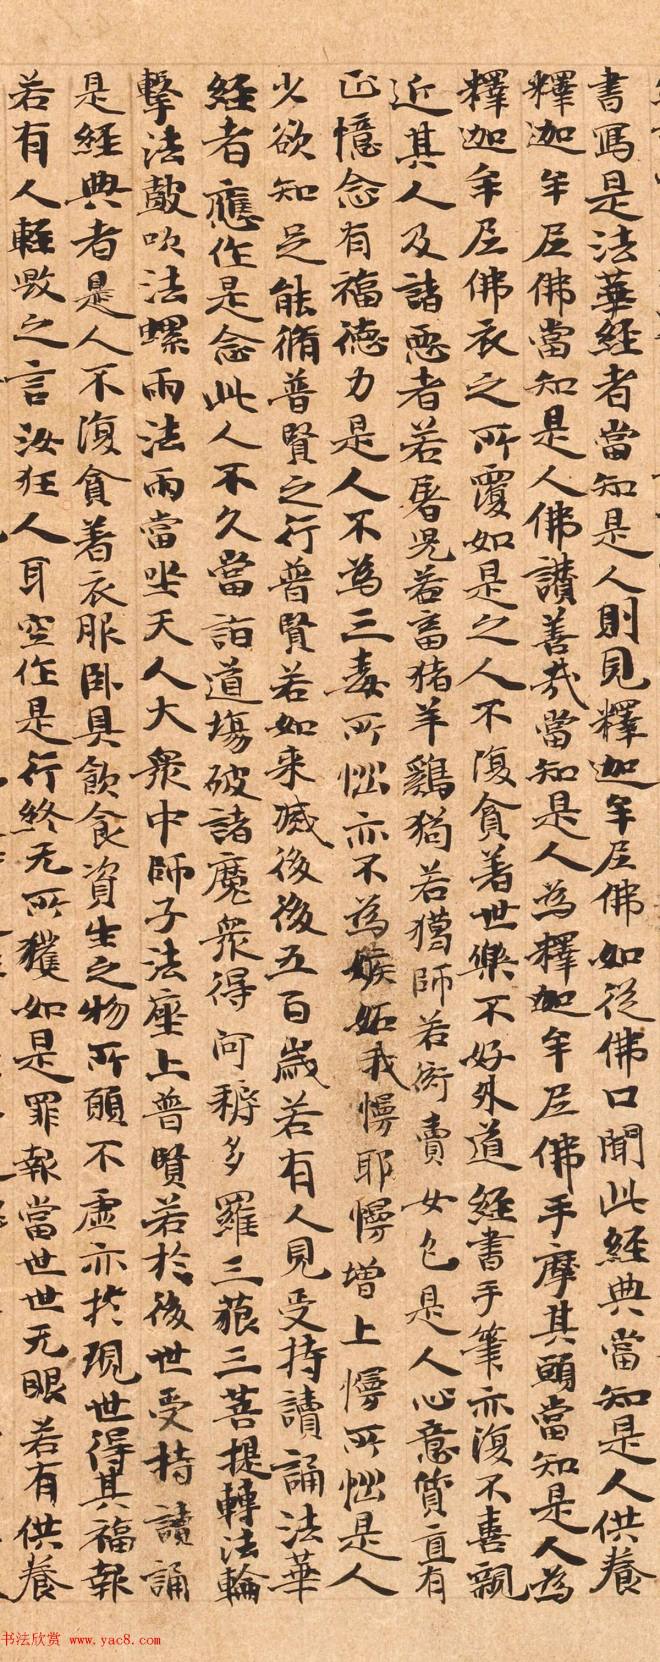 書寫是法華經者當知是人則見釋迦牟尼佛如從佛口聞此經典當知是人供養
釋迦牟尼佛當知是人佛讃善哉當知是人為釋迦牟尼佛手摩其頭當知是人為
釋迦牟尼佛衣之所覆如是之人不復貪著世樂不好外道經書手筆亦復不喜親
近其人及諸惡者若屠兒若畜猪羊鷄狗若獵師若衒賣女色是人心意質直有
正憶念有福德力是人不為三毒所惱亦不為嫉妬我慢耶慢增上慢所惱是人
少欲知足能脩普賢之行普賢若如来滅後後五百歲若有人見受持讀誦法華
經者應作是念此人不久當詣道場破諸魔衆得阿耨多羅三藐三菩提轉法輪
擊法皷吹法螺雨法雨當坐天人大衆中師子法座上普賢若於後世受持讀誦
是經典者是人不復貪著衣服卧具飲食資生之物所願不虛亦於現世得其福報
若有人輕毀之言汝狂人耳空作是行終无所獲如是罪報當世世无眼若有供養
书法欣赏 www.yac8.com